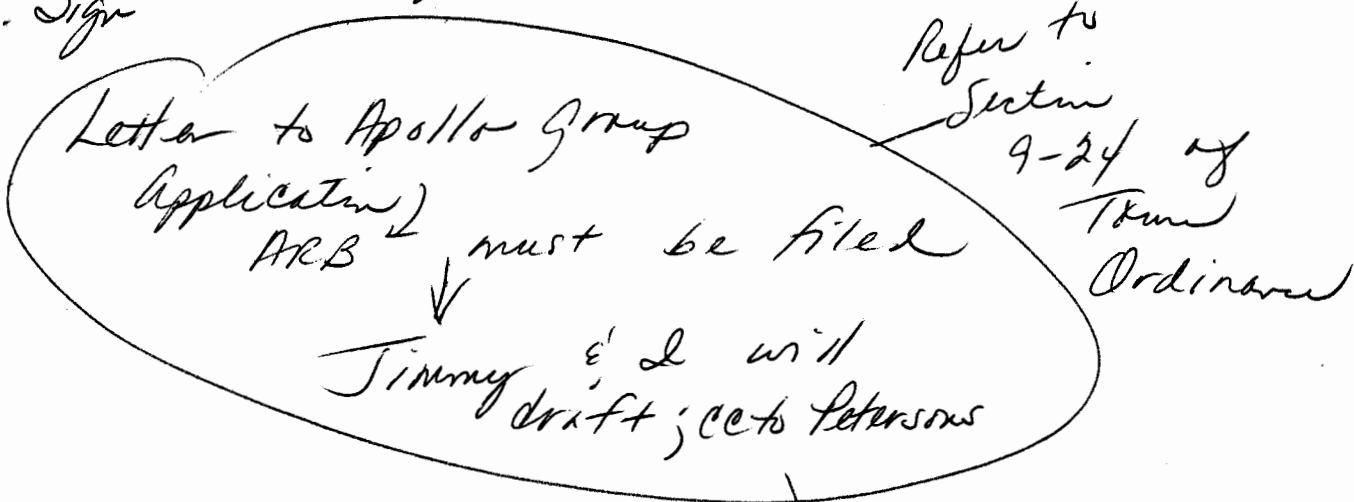 . Sign
Letter to Apollo Group
Application
ARB must be filed
Jimmy & I will
draft; cc to Petersons
Refer to
Section
9-24 of
Town
Ordinance